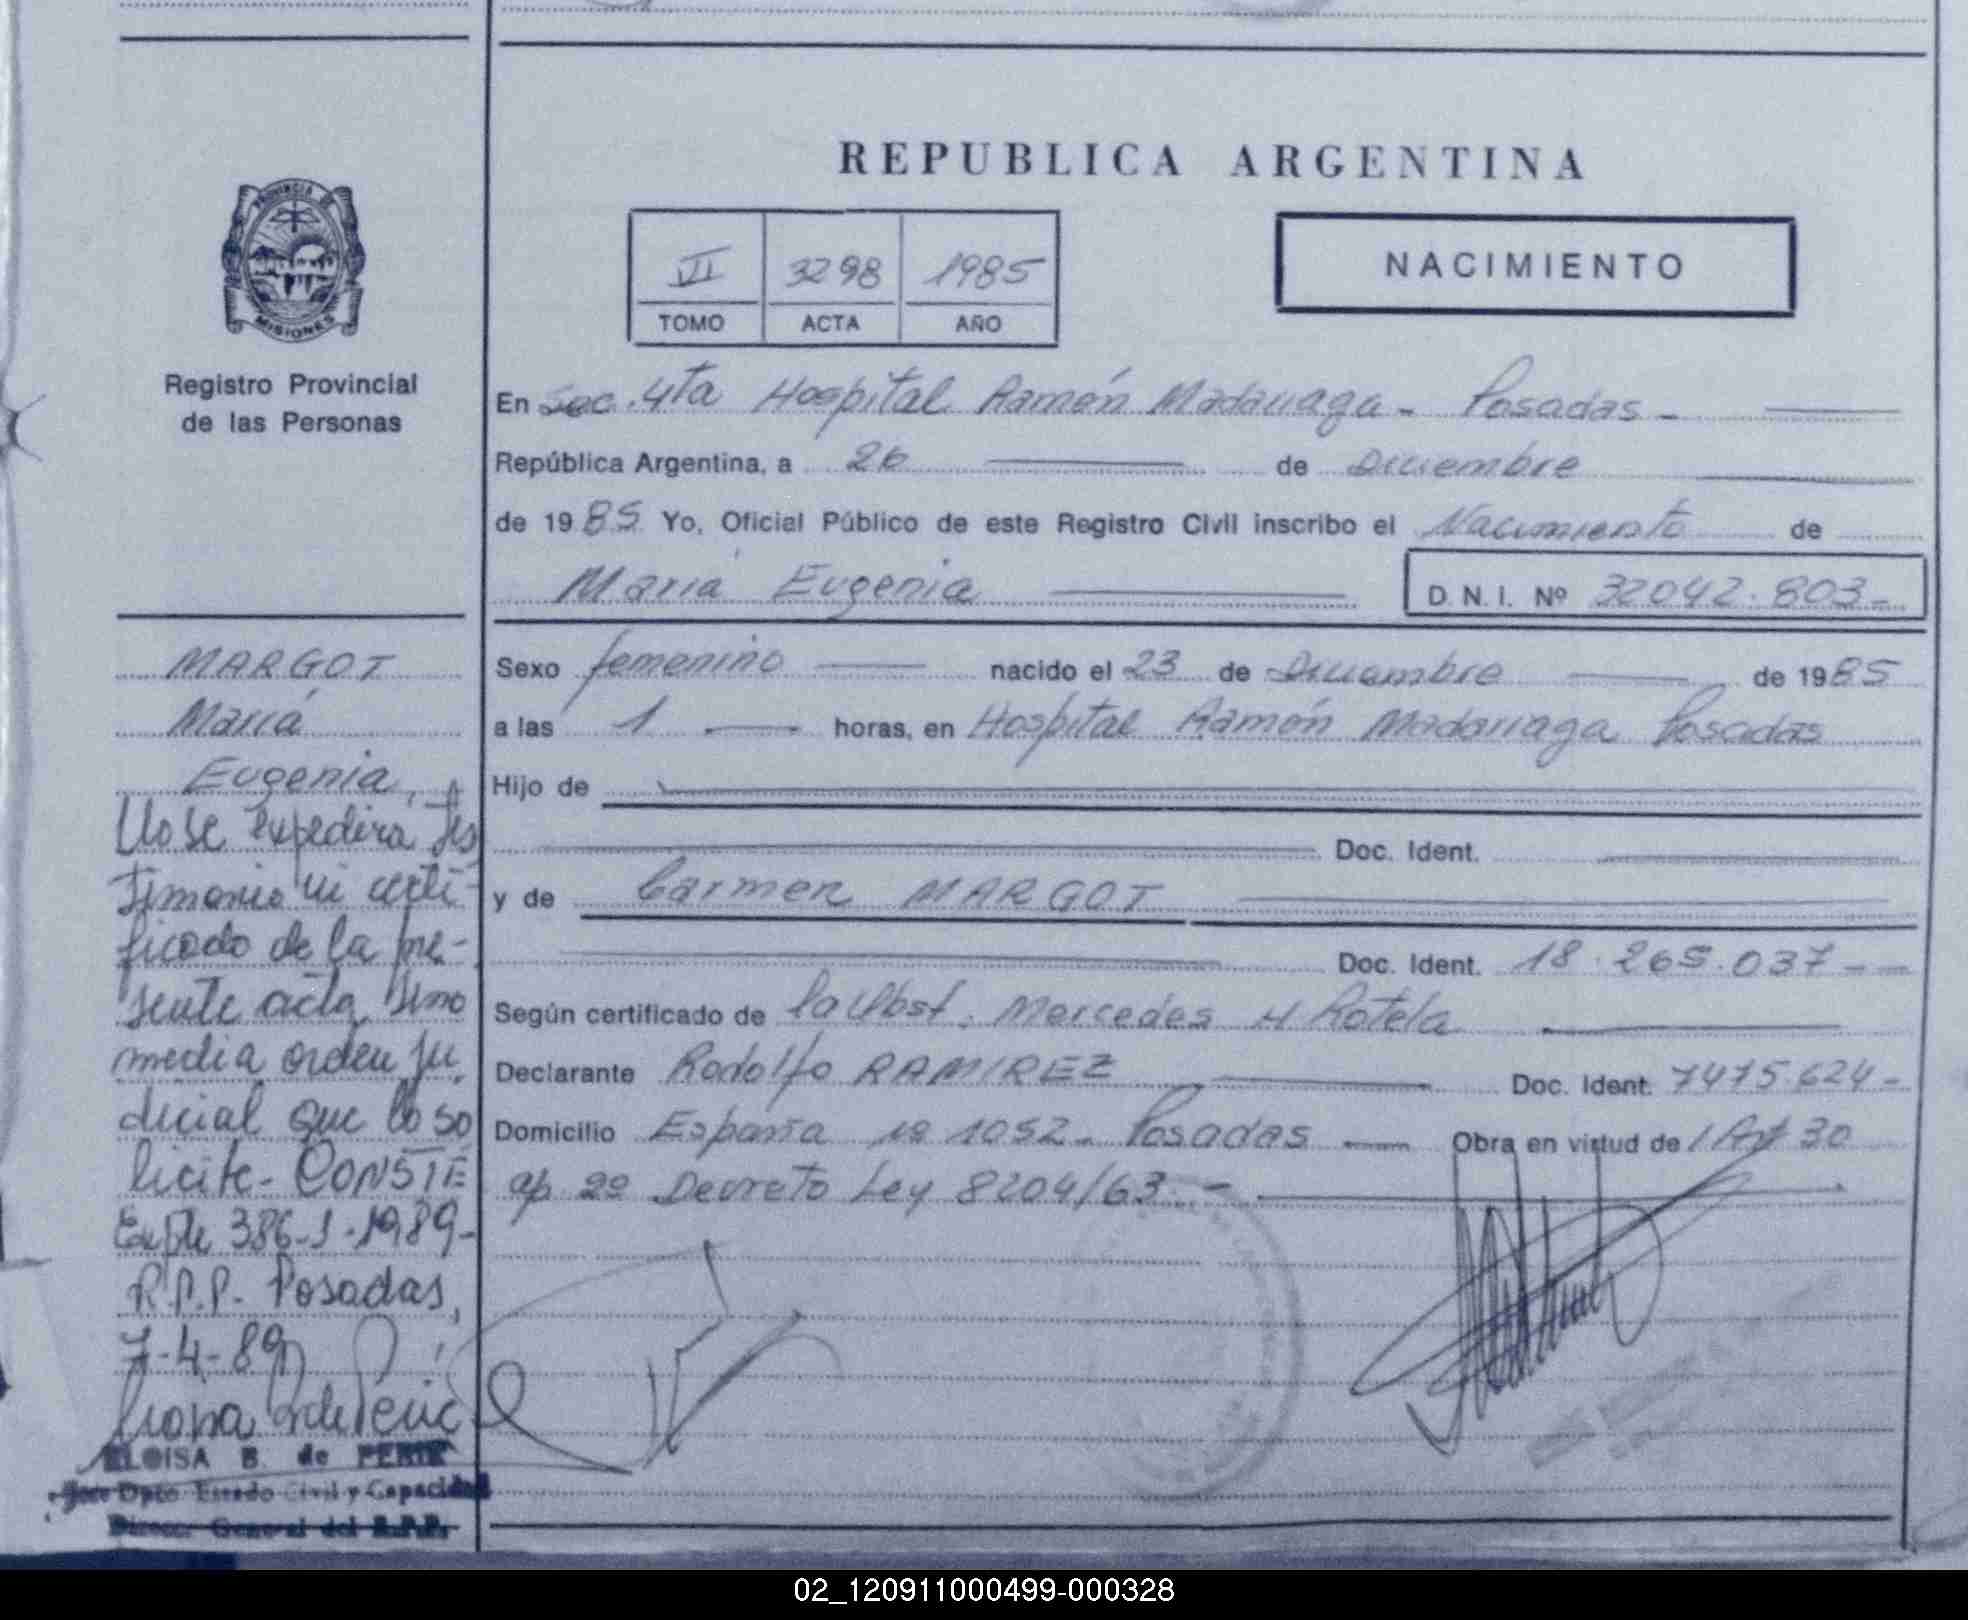 PROVINCIA DE
MISIONES
Registro Provincial
de las Personas
REPUBLICA ARGENTINA
VI 3298 1985
TOMO ACTA AÑO
NACIMIENTO
En Sec. 4ta Hospital Ramón Madariaga - Posadas -
República Argentina, a 26 de Diciembre
de 1985 Yo, Oficial Público de este Registro Civil inscribo el Nacimiento de
María Eugenia
D.N.I. Nº 32042.803-
Sexo femenino nacido el 23 de Diciembre de 1985
a las 1 horas, en Hospital Ramón Madariaga Posadas
Hijo de
Doc. Ident.
y de Carmen MARGOT
Doc. Ident. 18.265.037--
Según certificado de la Obst. Mercedes H Rotela
Declarante Rodolfo RAMIREZ Doc. Ident. 7475.624-
Domicilio España nº 1052- Posadas Obra en virtud de / Art 30
ap 2º Decreto Ley 8204/63.-
MARGOT
María
Eugenia
No se expedirá tes
timonio ni certi-
ficado de la pre-
sente acta, sino
media orden ju
dicial que lo so
licite- CONSTE
Expte 386-1-1989-
R.P.P. Posadas,
7-4-89
ELOISA B. de PERIE
Jefe Dpto Estado Civil y Capacidad
Director General del R.P.P.
02_120911000499-000328